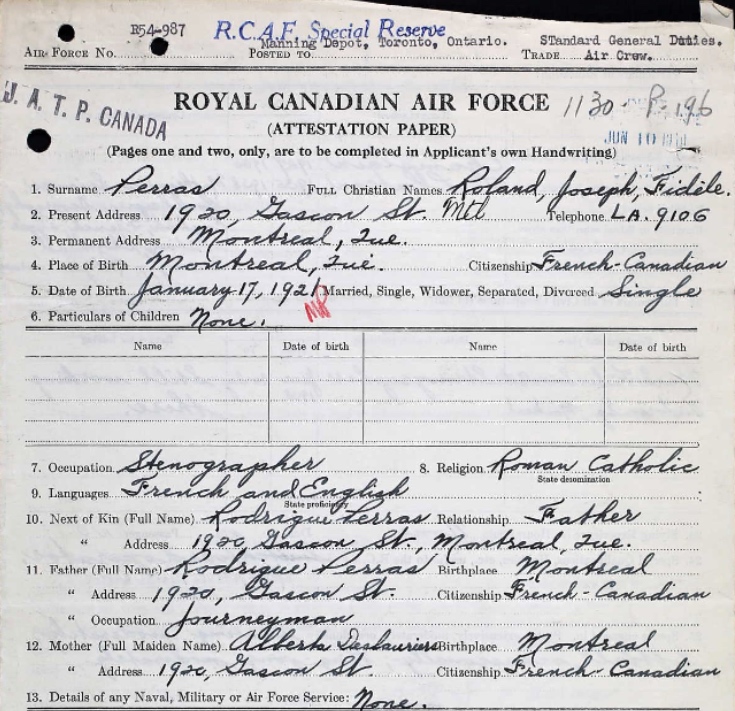 R54-987 R.C.A.F. Special Reserve
AIR FORCE NO. POSTED TO Manning Depot, Toronto, Ontario. TRADE STandard General Duties. Air Crew.
J. A. T. P. CANADA
ROYAL CANADIAN AIR FORCE 1130 P-196
(ATTESTATION PAPER) JUN 10
(Pages one and two, only, are to be completed in Applicant's own Handwriting)
1. Surname Perras FULL Christian Names Roland, Joseph, Fidèle.
2. Present Address 1920, Gascon St. Mtl Telephone LA. 9106
3. Permanent Address Montreal, Que.
4. Place of Birth Montreal, Que. Citizenship French-Canadian
5. Date of Birth January 17, 1921 Married, Single, Widower, Separated, Divorced Single
6. Particulars of Children None.
Name Date of birth Name Date of birth
7. Occupation Stenographer 8. Religion Roman Catholic
State denomination
9. Languages French and English
State proficiency
10. Next of Kin (Full Name) Rodrigue Perras Relationship Father
" Address 1920, Gascon St., Montreal, Que.
11. Father (Full Name) Rodrigue Perras Birthplace Montreal
" Address 1920, Gascon St. Citizenship French-Canadian
" Occupation Journeyman
12. Mother (Full Maiden Name) Alberta Deslauriers Birthplace Montreal
" Address 1920, Gascon St. Citizenship French-Canadian
13. Details of any Naval, Military or Air Force Service: None.